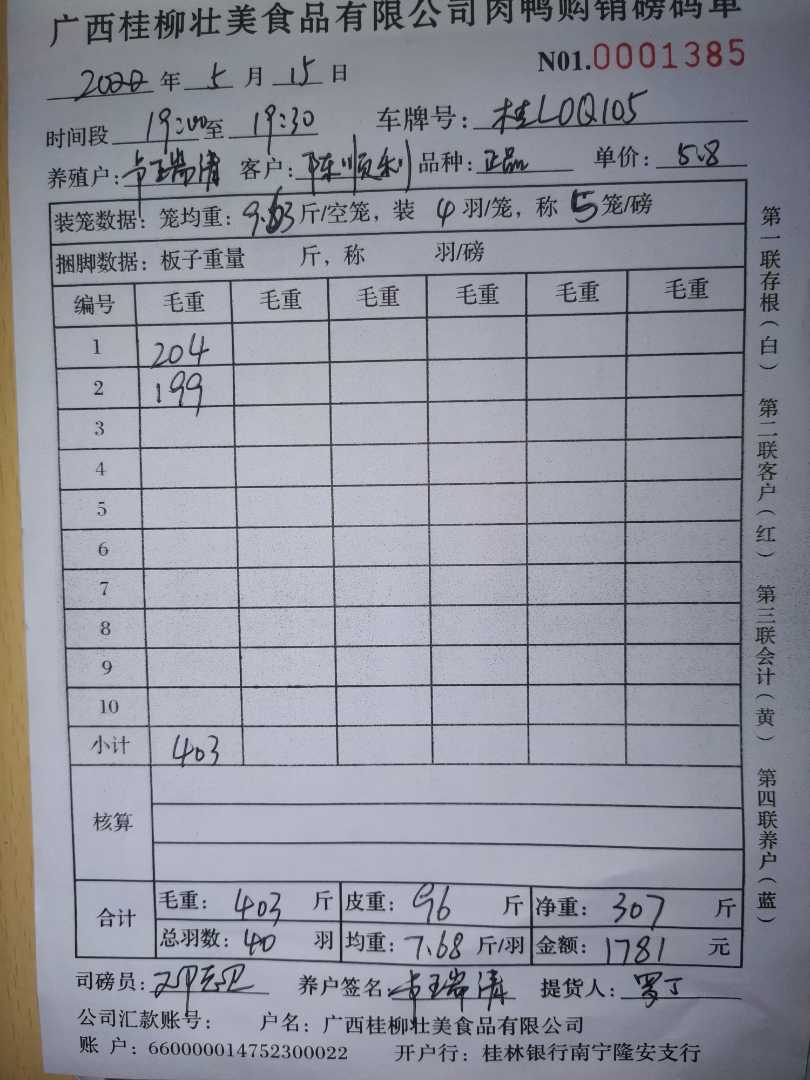 广西桂柳壮美食品有限公司肉鸭购销磅码单
N01.0001385
2022年5月15日
时间段 19:00至19:30 车牌号：桂L0Q105
养殖户：韦瑞清 客户：陈顺利 品种：正品 单价：5.8
装笼数据：笼均重：9.63斤/空笼，装4羽/笼，称5笼/磅
捆脚数据：板子重量 斤，称 羽/磅
编号 毛重 毛重 毛重 毛重 毛重 毛重
1 204
2 199
3
4
5
6
7
8
9
10
小计 403
核算
合计 毛重：403斤 皮重：96斤 净重：307斤
总羽数：40羽 均重：7.68斤/羽 金额：1781元
司磅员： 养户签名 韦瑞清 提货人：罗丁
公司汇款账号： 户名：广西桂柳壮美食品有限公司
账 户：660000014752300022 开户行：桂林银行南宁隆安支行
第一联存根（白） 第二联客户（红） 第三联会计（黄） 第四联养户（蓝）